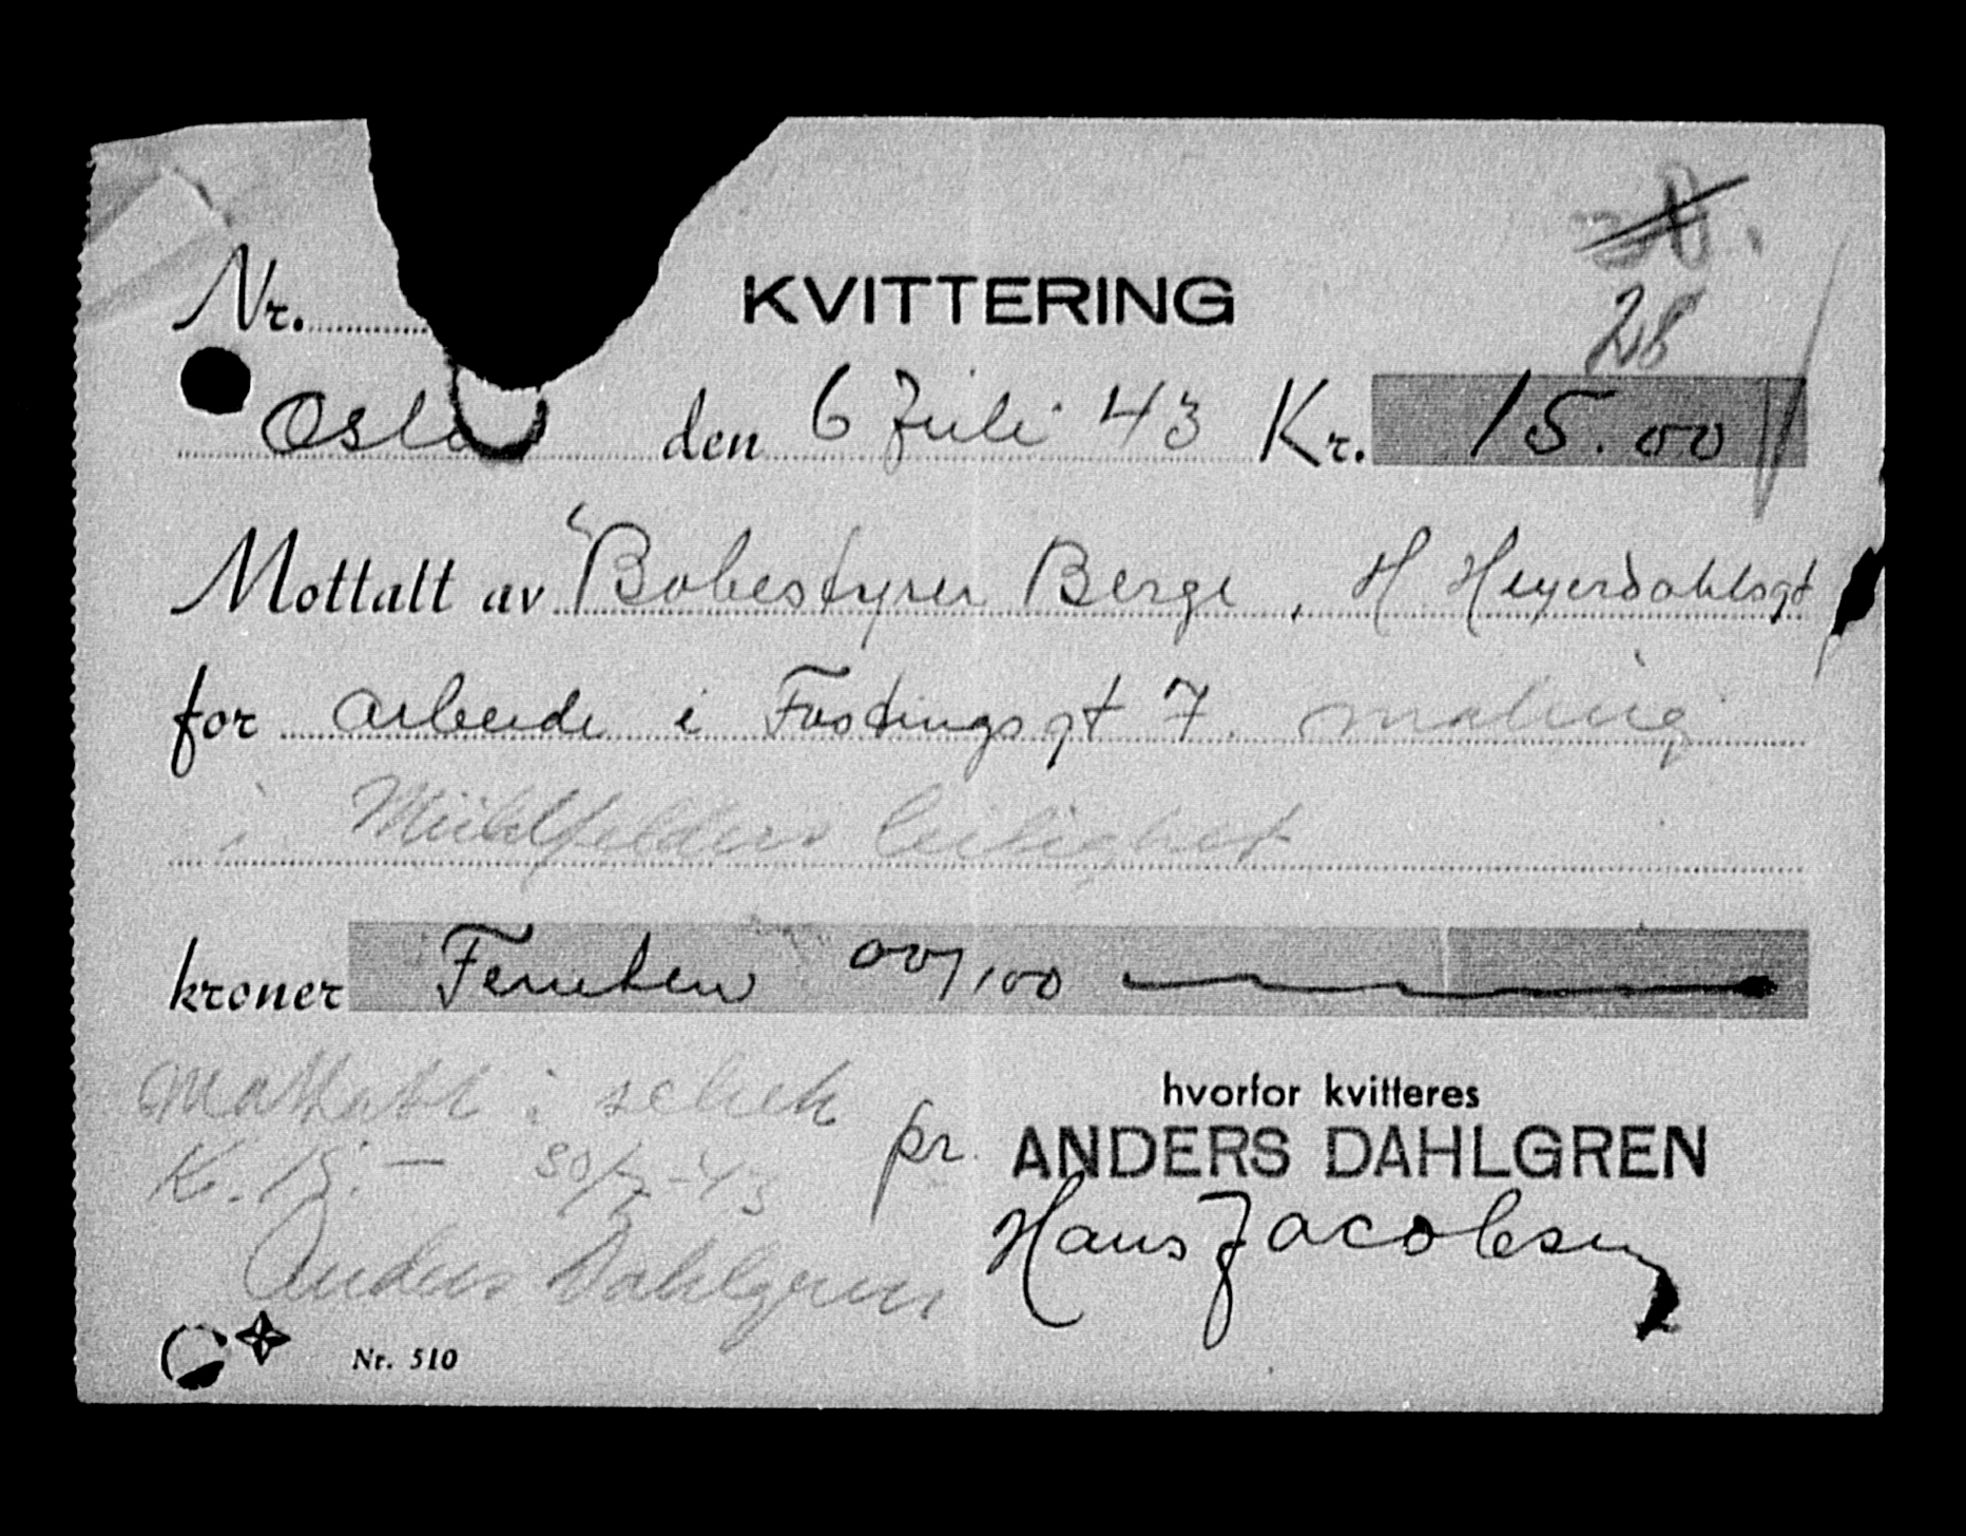 KVITTERING
Nr.
28
Oslo den 6 Juli 43 Kr. 15.00
Mottatt av Bobestyrer Berge, H Heyerdahlsgt
for arbeide i Fastingsgt 7. maling
i Mühlfelders leilighet
kroner Femten 00/100
Mottatt i schek
hvorfor kvitteres
Kr. 15.— 30/7-43
pr. ANDERS DAHLGREN
Hans Jacobsen
Anders Dahlgren
Nr. 510